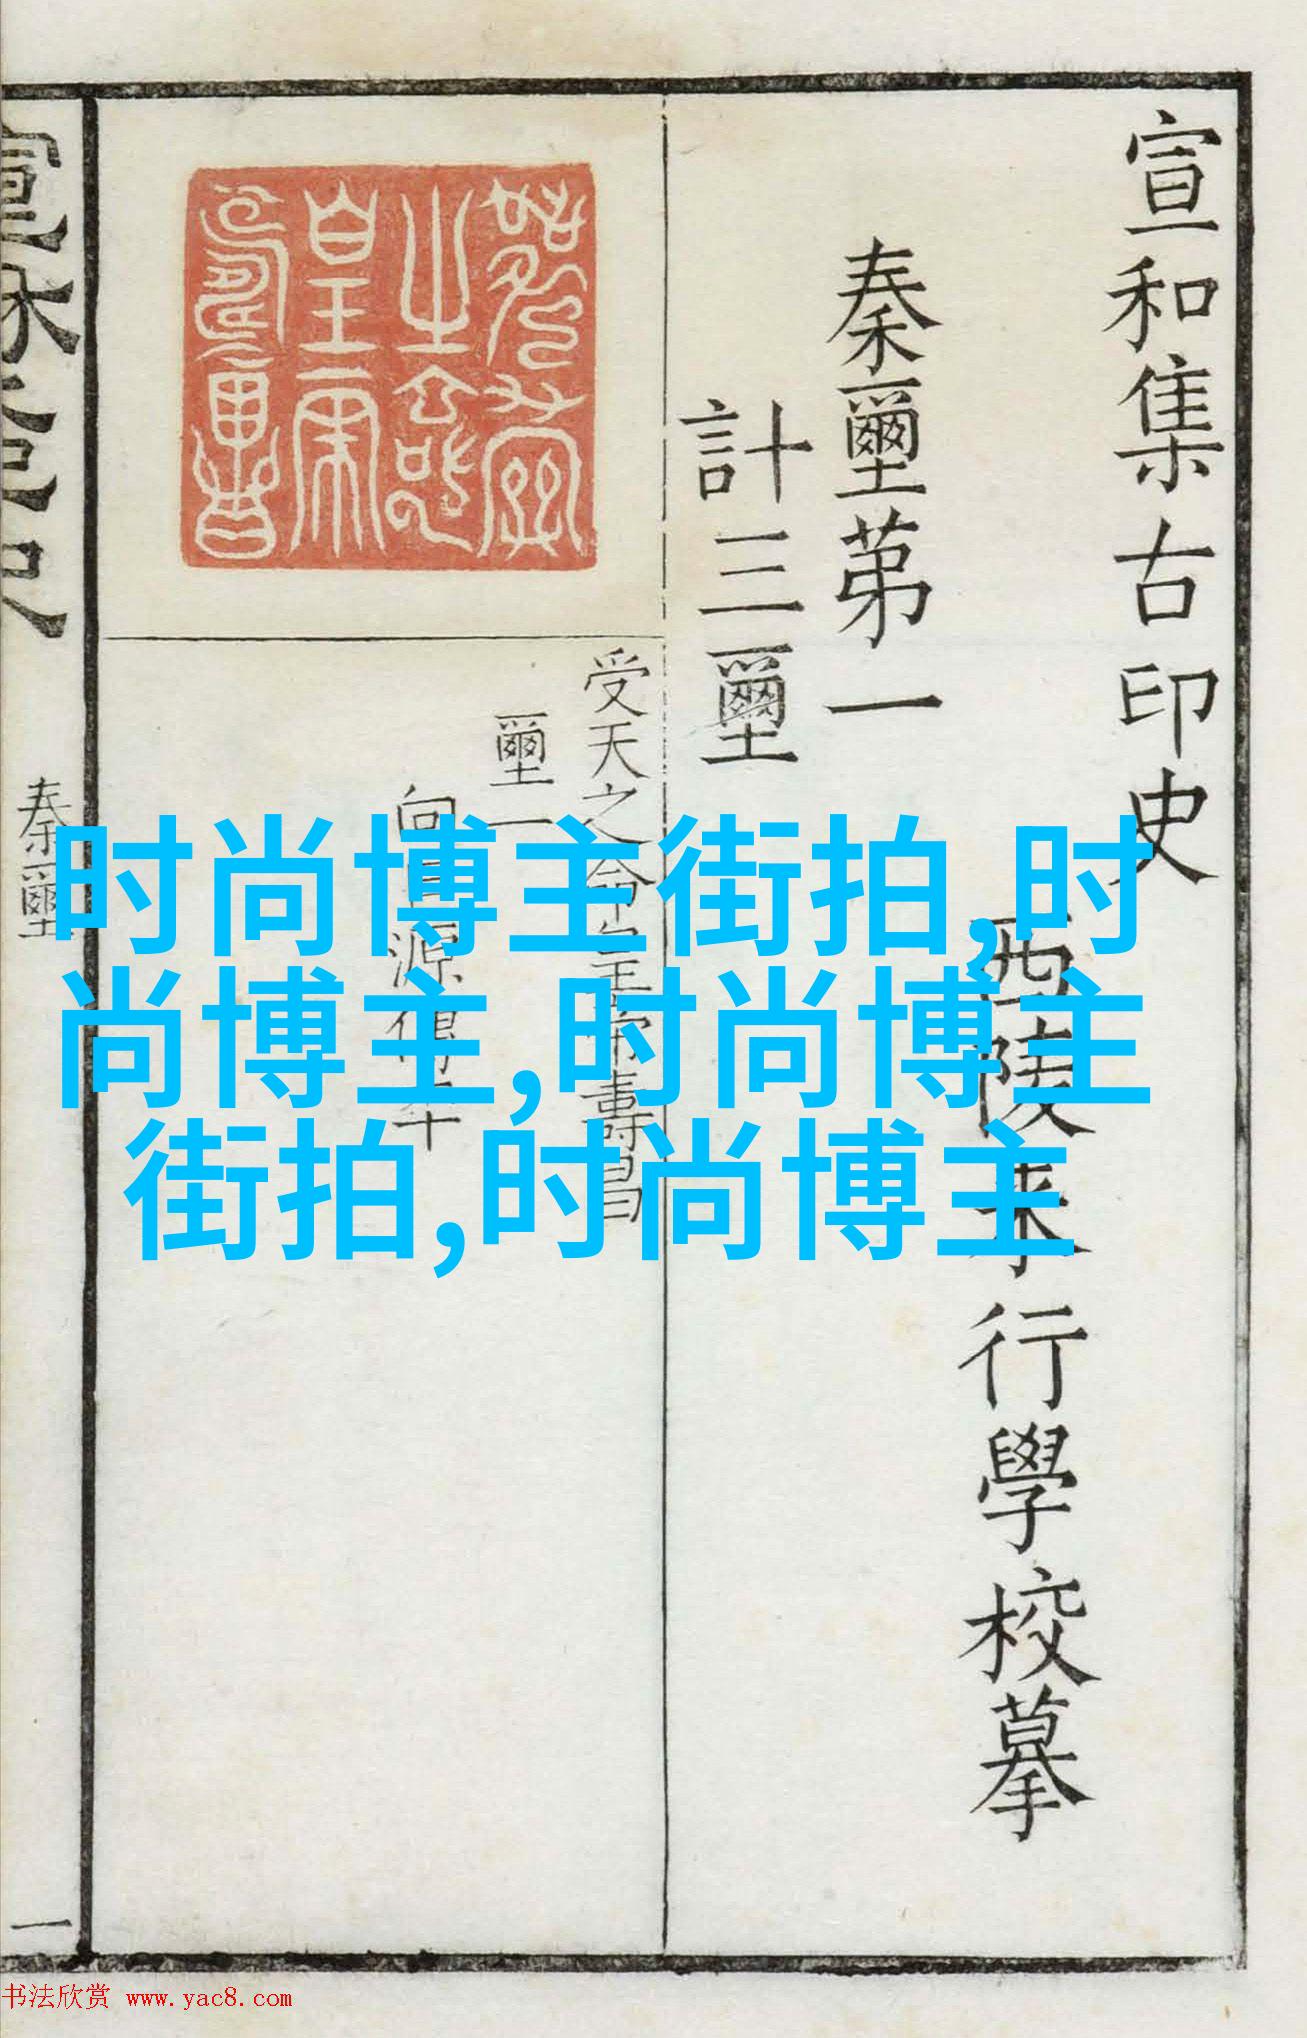 宣和集古印史
西陵来行學校摹
秦璽第一
計三璽
受天之命皇帝壽昌
璽一
向巨源傳本
秦璽
一
时尚博主街拍,时
尚博主,时尚博主
街拍,时尚博主
书法欣赏 www.yac8.com